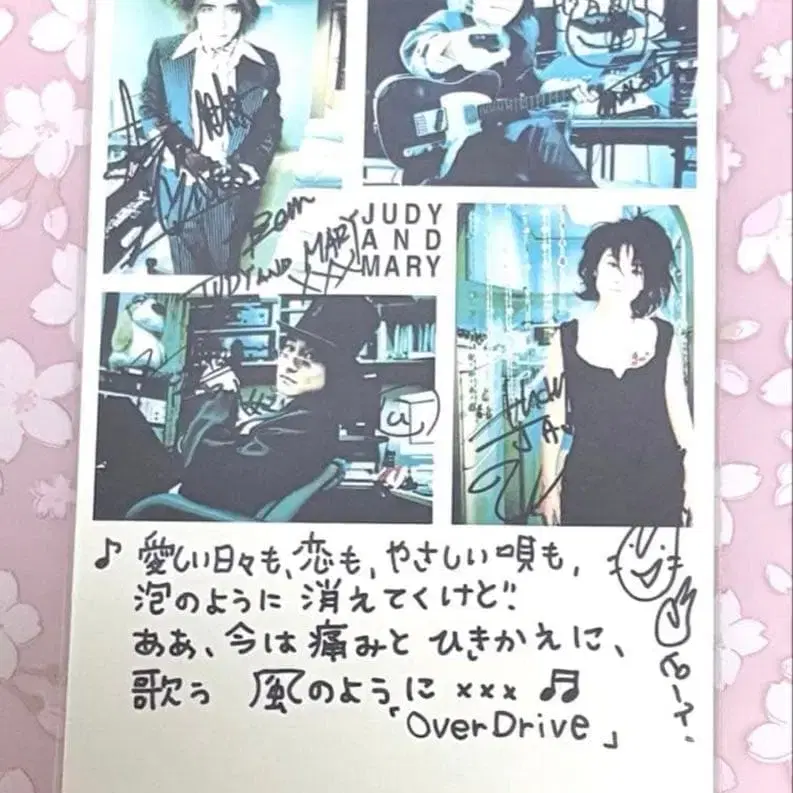 From
JUDY AND MARY
xxx
JUDY
AND
MARY
♪ 愛しい日々も、恋も、やさしい唄も、
泡のように 消えてくけど!!
ああ、今は 痛みと ひきかえに、
歌う 風のように xxx ♬
「OverDrive」